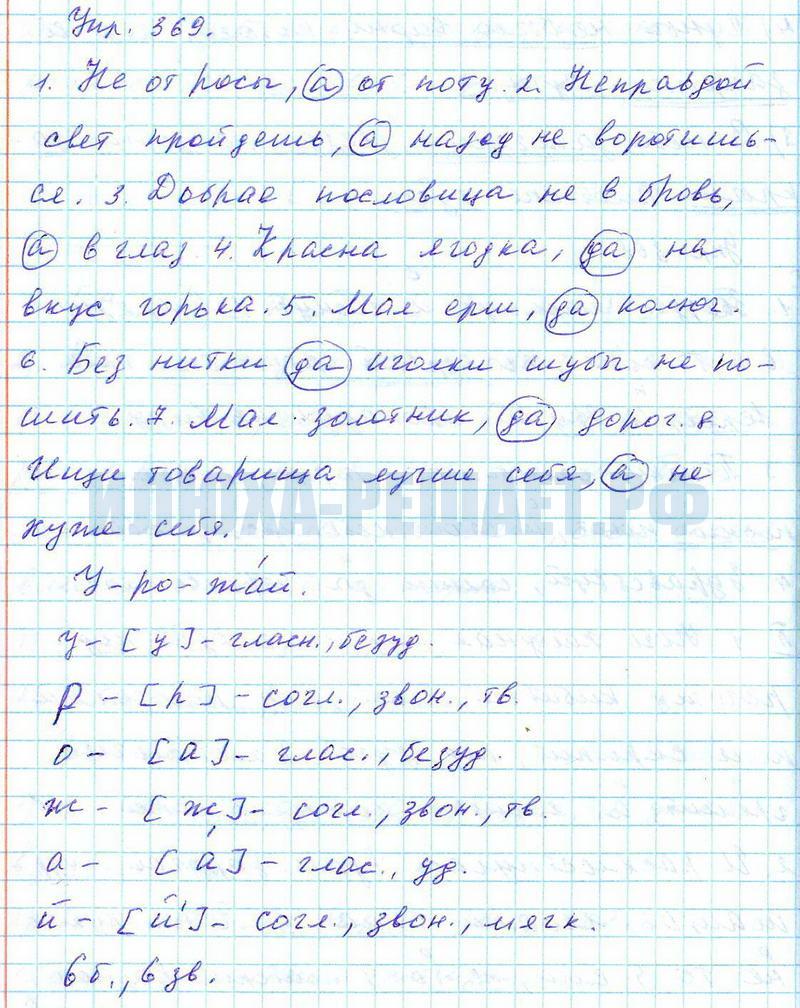 Упр. 369.
1. Не от росы, а от поту. 2. Неправдой
свет пройдешь, а назад не воротишь-
ся. 3. Добрая пословица не в бровь,
а в глаз 4. Красна ягодка, да на
вкус горька. 5. Мал ерш, да колюч.
6. Без нитки да иголки шубы не по-
шить. 7. Мал золотник, да дорог. 8.
Ищи товарища лучше себя, а не
хуже себя.
ИЛЮХА-РЕШАЕТ.РФ
У-ро-жа́й.
у - [у] - гласн., безуд.
р - [р] - согл., звон., тв.
о - [а] - глас., безуд.
ж - [ж] - согл., звон., тв.
а - [а́] - глас., уд.
й - [й'] - согл., звон., мягк.
6 б., 6 зв.